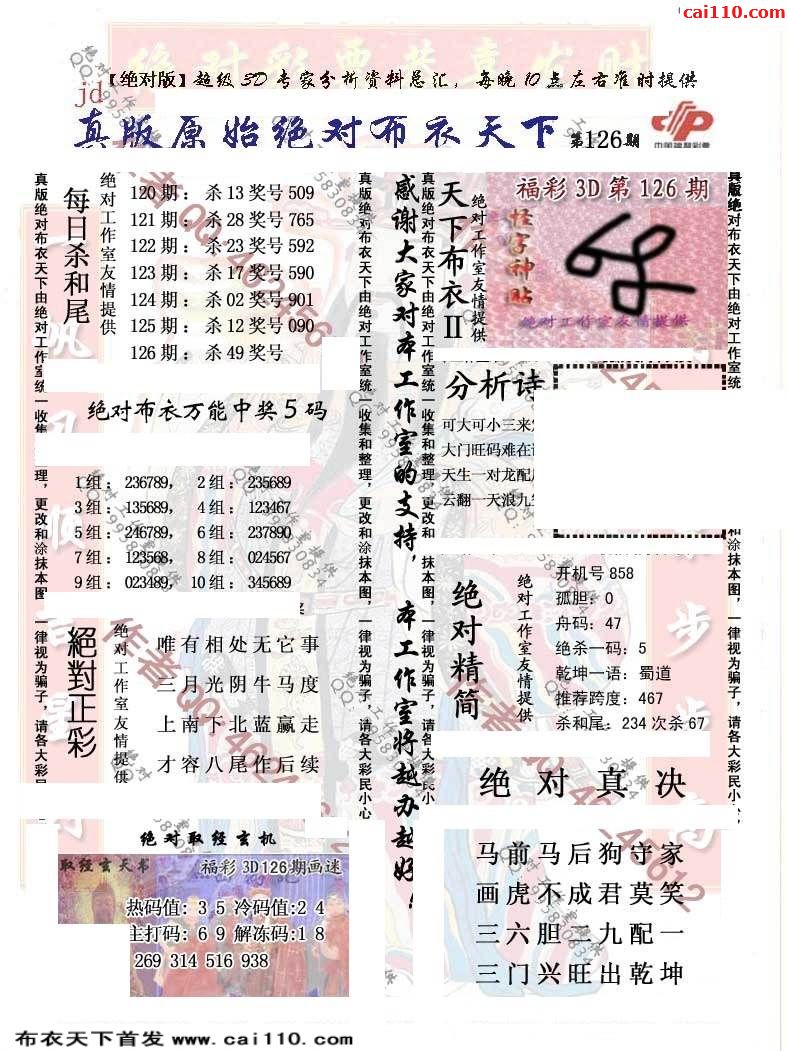 cai110.com
【绝对版】超级3D专家分析资料总汇，每晚10点左右准时提供
jd
真版原始绝对布衣天下 第126期
中国福利彩票
每日杀和尾
绝对工作室友情提供
120期：杀13奖号509
121期：杀28奖号765
122期：杀23奖号592
123期：杀17奖号590
124期：杀02奖号901
125期：杀12奖号090
126期：杀49奖号
绝对布衣万能中奖5码
1组：236789， 2组：235689
3组：135689， 4组：123467
5组：246789， 6组：237890
7组：123568， 8组：024567
9组：023489， 10组：345689
絕對正彩
绝对工作室友情提供
唯有相处无它事
三月光阴牛马度
上南下北蓝赢走
才容八尾作后续
绝对取经玄机
取经玄天书
福彩3D126期画迷
热码值：3 5 冷码值:2 4
主打码：6 9 解冻码:1 8
269 314 516 938
真版绝对布衣天下由绝对工作室统一收集和整理，更改和涂抹本图，一律视为骗子，请各大彩民小心
感谢大家对本工作室的支持，本工作室将越办越好
真版绝对布衣天下由绝对工作室统一收集和整理，更改和涂抹本图，一律视为骗子，请各大彩民小
天下布衣II
绝对工作室友情提供
福彩3D第126期
怪字神贴
绝对工作室友情提供
分析诗
可大可小三来
大门旺码难在
天生一对龙配
云翻一天浪九
绝对精简
绝对工作室友情提供
开机号 858
孤胆：0
舟码：47
绝杀一码：5
乾坤一语：蜀道
推荐跨度：467
杀和尾：234 次杀 67
绝对真决
马前马后狗守家
画虎不成君莫笑
三六胆二九配一
三门兴旺出乾坤
布衣天下首发 www.cai110.com